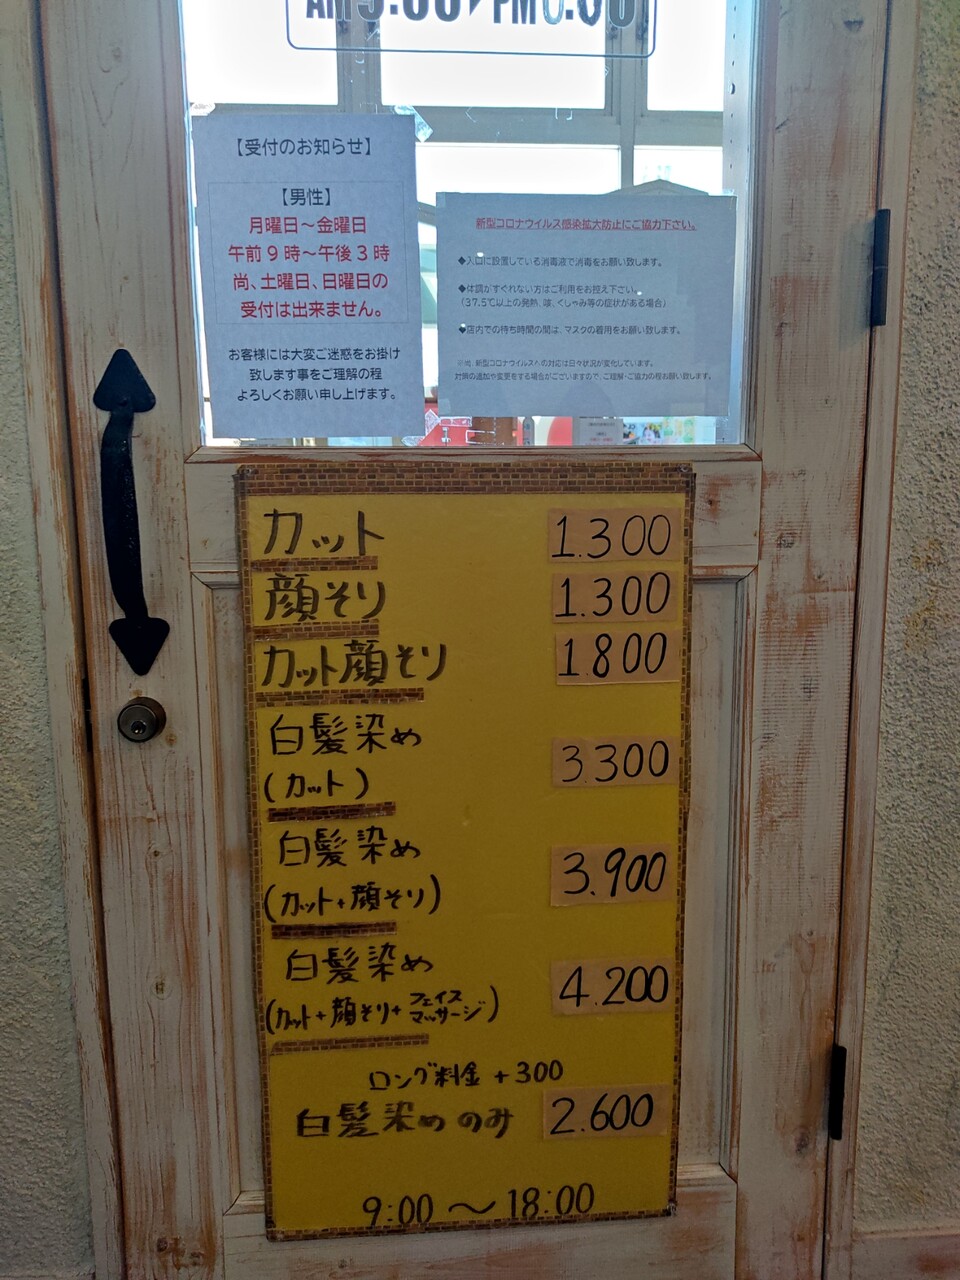 【受付のお知らせ】
【男性】
月曜日～金曜日
午前９時～午後３時
尚、土曜日、日曜日の
受付は出来ません。
お客様には大変ご迷惑をお掛け
致します事をご理解の程
よろしくお願い申し上げます。
新型コロナウイルス感染拡大防止にご協力下さい。
◆入口に設置している消毒液で消毒をお願い致します。
◆体調がすぐれない方はご利用をお控え下さい。
（37.5℃以上の発熱、咳、くしゃみ等の症状がある場合）
◆店内での待ち時間の間は、マスクの着用をお願い致します。
※尚、新型コロナウイルスへの対応は日々状況が変化しています。
対策の追加や変更をする場合がございますので、ご理解・ご協力の程お願い致します。
カット 1.300
顔そり 1.300
カット顔そり 1.800
白髪染め
(カット) 3.300
白髪染め
(カット+顔そり) 3.900
白髪染め
(カット+顔そり+フェイスマッサージ) 4.200
ロング料金 +300
白髪染めのみ 2.600
9:00～18:00